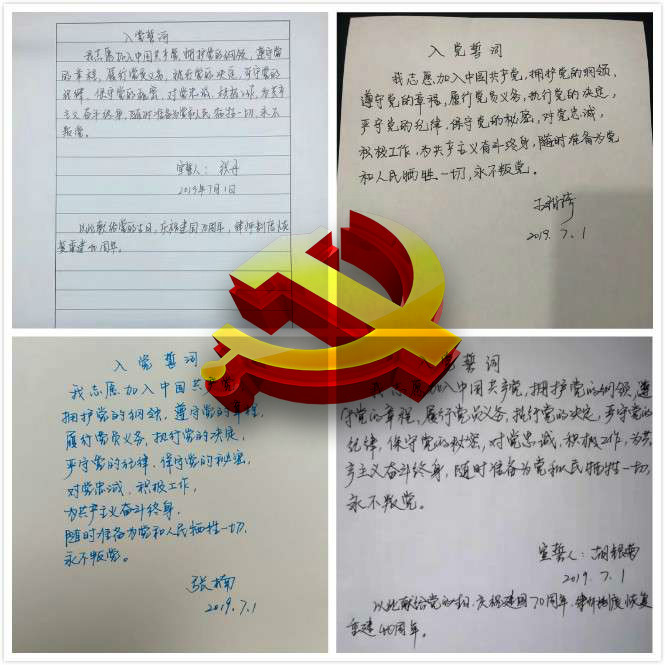 入党誓词
我志愿加入中国共产党,拥护党的纲领,遵守党
的章程,履行党员义务,执行党的决定,严守党的
纪律,保守党的秘密,对党忠诚,积极工作,为共产
主义奋斗终身,随时准备为党和人民牺牲一切,永不
叛党。
宣誓人:张丹
2019年7月1日
以此献给党的生日,庆祝建国70周年,律师制度恢
复重建40周年。
入党誓词
我志愿加入中国共产党,拥护党的纲领,
遵守党的章程,履行党员义务,执行党的决定,
严守党的纪律,保守党的秘密,对党忠诚,
积极工作,为共产主义奋斗终身,随时准备为党
和人民牺牲一切,永不叛党。
2019.7.1
入党誓词
我志愿加入中国共产党
拥护党的纲领,遵守党的章程,
履行党员义务,执行党的决定,
严守党的纪律,保守党的秘密,
对党忠诚,积极工作,
为共产主义奋斗终身,
随时准备为党和人民牺牲一切,
永不叛党。
张楠
2019.7.1
入党誓词
加入中国共产党,拥护党的纲领,遵
守党的章程,履行党员义务,执行党的决定,严守党的
纪律,保守党的秘密,对党忠诚,积极工作,为共
产主义奋斗终身,随时准备为党和人民牺牲一切,
永不叛党。
宣誓人:胡银
2019.7.1
以此献给党的生日,庆祝建国70周年,律师制度恢复
重建40周年。